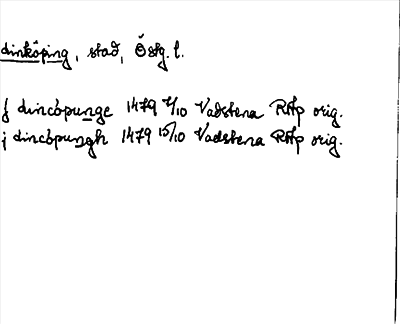 dinköping, stad, Östg. l.
j dincöpunge 1479 7/10 Vadstena RAp orig.
j dincöpungh 1479 15/10 Vadstena RAp orig.